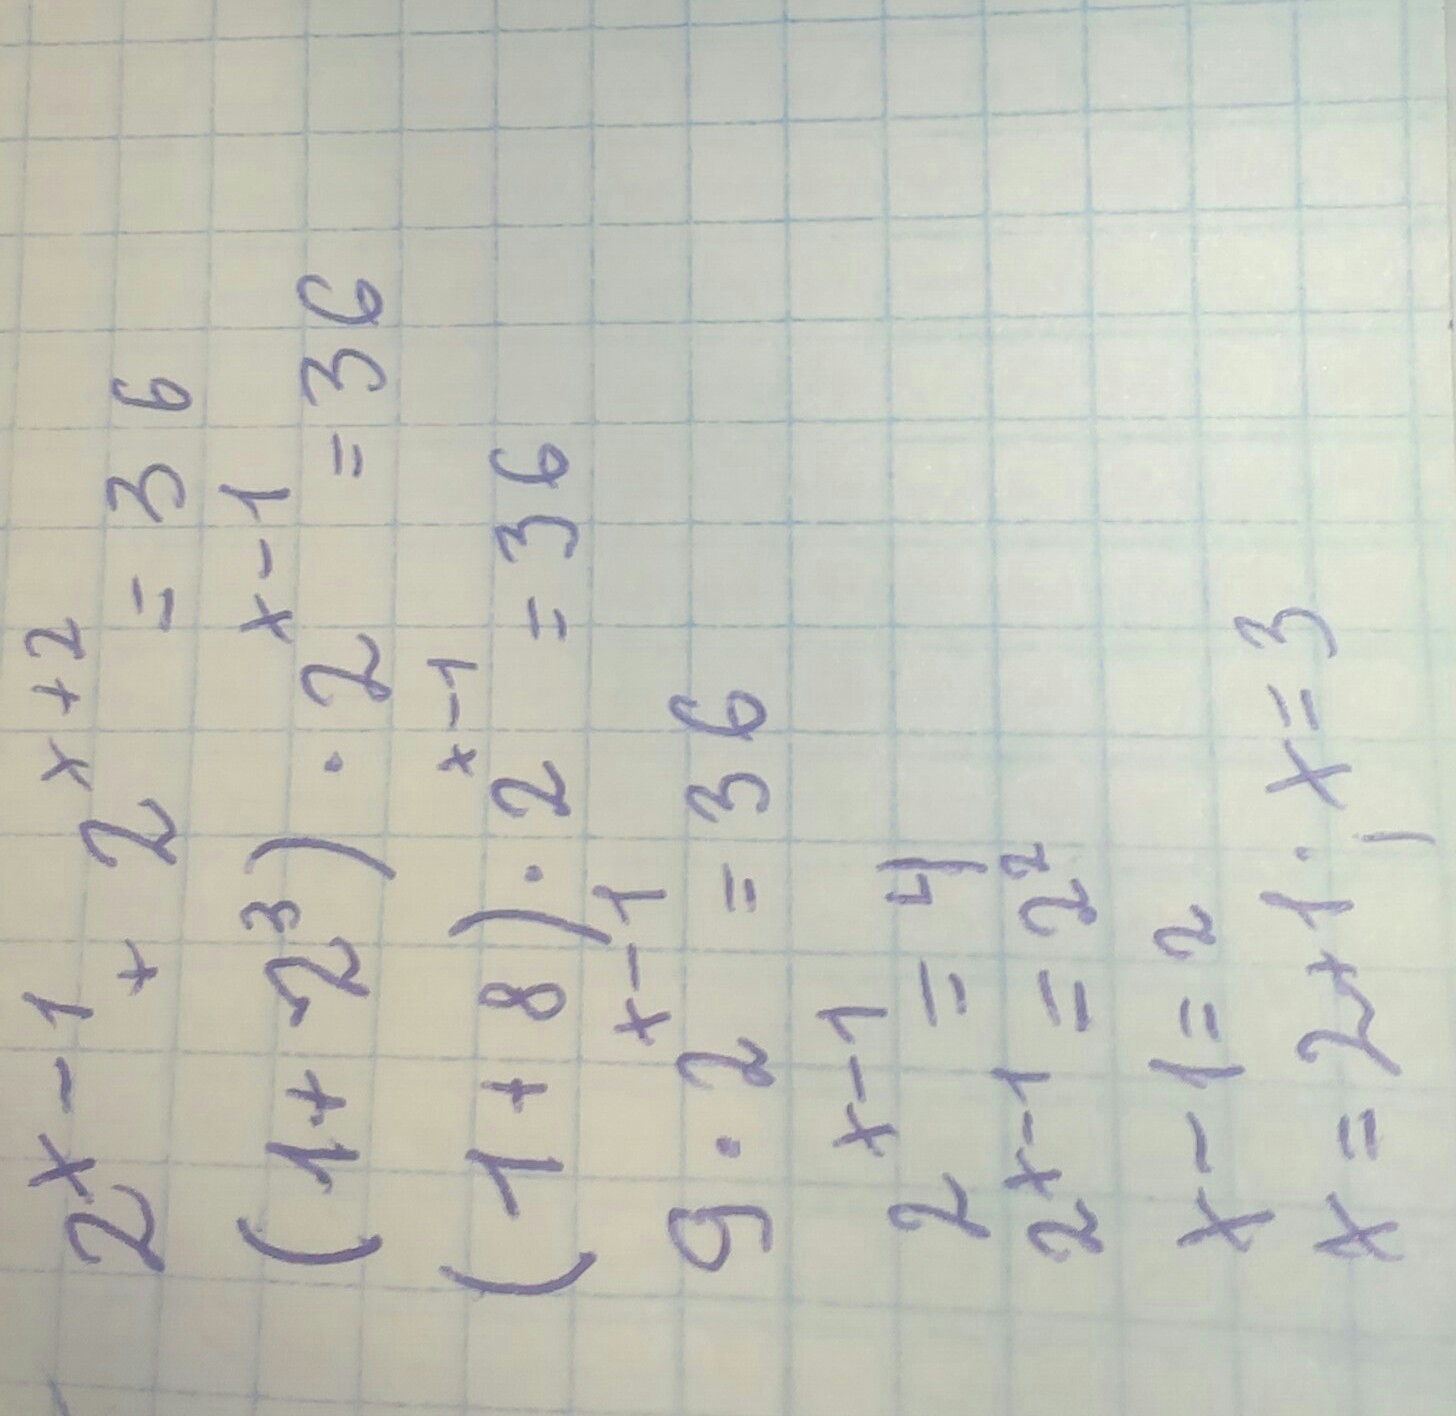 2ˣ⁻¹ + 2ˣ⁺² = 36
(1 + 2³) · 2ˣ⁻¹ = 36
(1 + 8) · 2ˣ⁻¹ = 36
9 · 2ˣ⁻¹ = 36
2ˣ⁻¹ = 4
2ˣ⁻¹ = 2²
x - 1 = 2
x = 2 + 1; x = 3